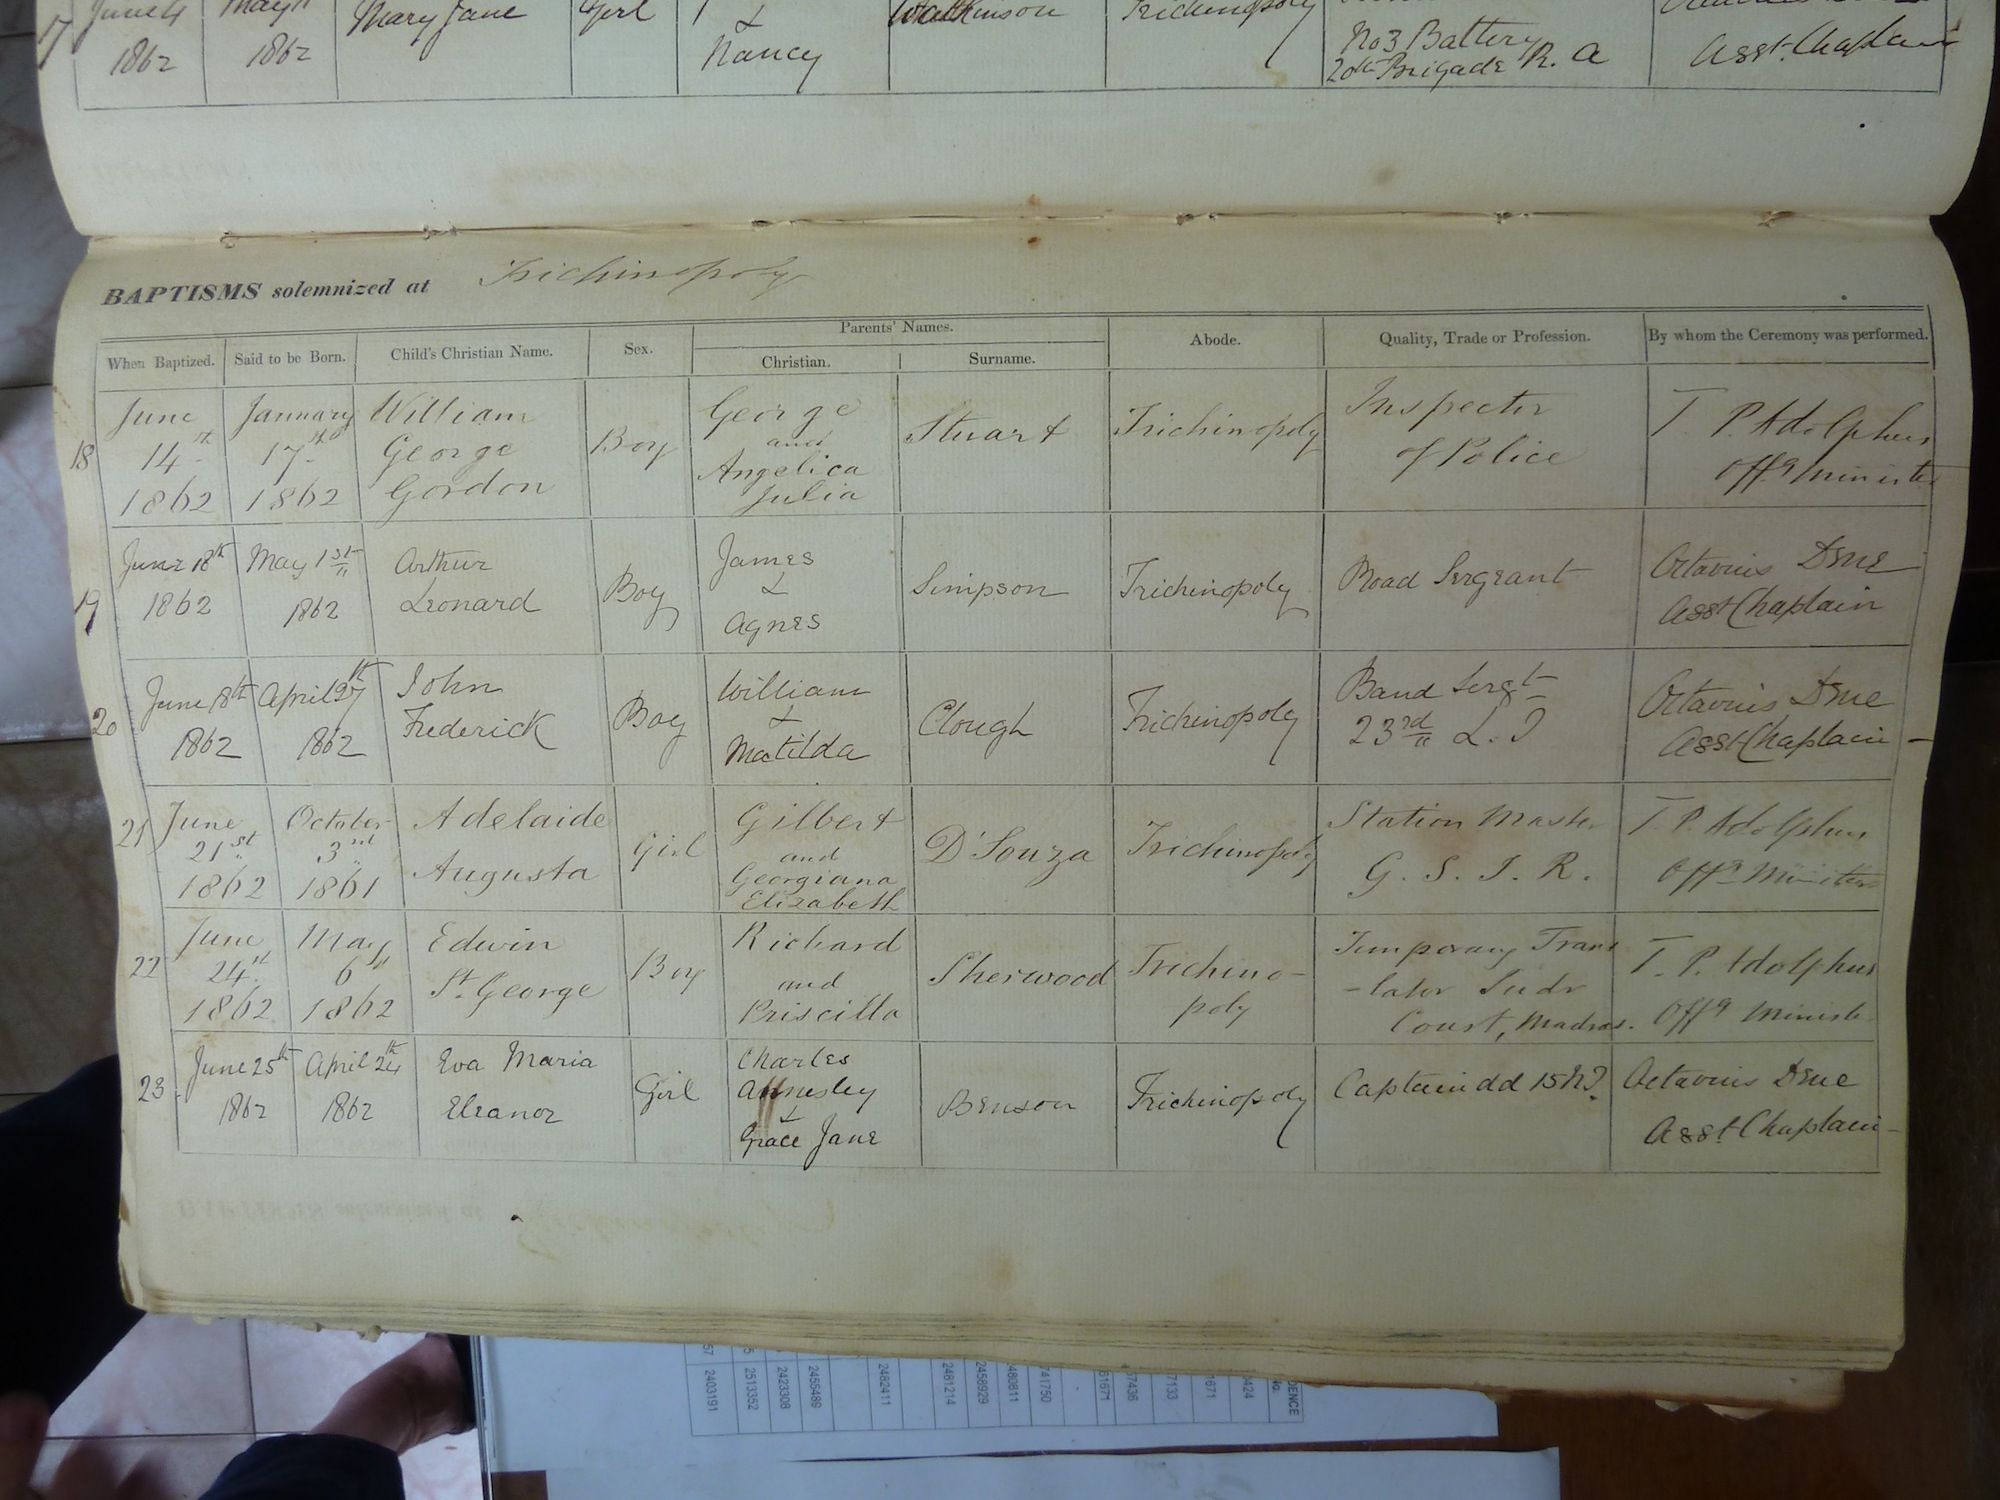 17 June 4 May 11 Mary Jane Girl & Watkinson Trichinopoly
1862 1862 Nancy No 3 Battery
20th Brigade R. A Asst. Chaplain
BAPTISMS solemnized at Trichinopoly
When Baptized. Said to be Born. Child's Christian Name. Sex. Parents' Names. Abode. Quality, Trade or Profession. By whom the Ceremony was performed.
Christian. Surname.
18 June 14th 1862 January 17th 1862 William George Gordon Boy George and Angelica Julia Stuart Trichinopoly Inspector of Police T. P. Adolphus Offg Minister
19 June 18th 1862 May 1st 1862 Arthur Leonard Boy James & Agnes Simpson Trichinopoly Road Sergeant Octavius Dene Asst Chaplain
20 June 18th 1862 April 27th 1862 John Frederick Boy William & Matilda Clough Trichinopoly Band Sergt 23rd L. I Octavius Dene Asst Chaplain
21 June 21st 1862 October 3rd 1861 Adelaide Augusta Girl Gilbert and Georgiana Elizabeth D'Souza Trichinopoly Station Master G. S. I. R. T. P. Adolphus Offg Minister
22 June 24th 1862 May 6th 1862 Edwin St. George Boy Richard and Priscilla Sherwood Trichino-poly Temporary Trans-lator Sudr Court, Madras. T. P. Adolphus Offg Ministe
23 June 25th 1862 April 24th 1862 Eva Maria Eleanor Girl Charles Annesley & Grace Jane Benson Trichinopoly Captain dd 15 N.I Octavius Dene Asst Chaplain
2403191
2513352
2423308
2455489
2482411
2481214
2458929